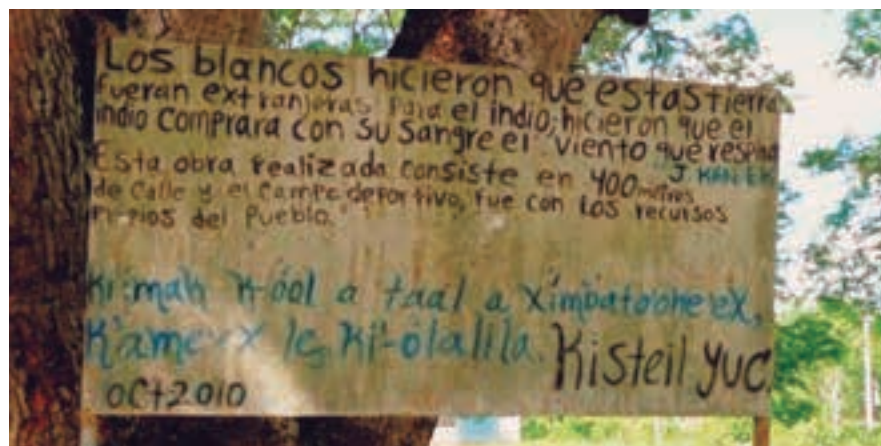 Los blancos hicieron que estas tierra
fueran extranjeras para el indio; hicieron que el
indio comprara con su sangre el viento que respira
J. KANEK
Esta obra realizada consiste en 400 metros
de calle y el campo deportivo, fue con los recursos
propios del Pueblo.
Ki'mak k-óol a taal a ximbatoone'ex,
K'ame'ex le ki'-ólalila. Kisteil Yuc.
Oct 2010